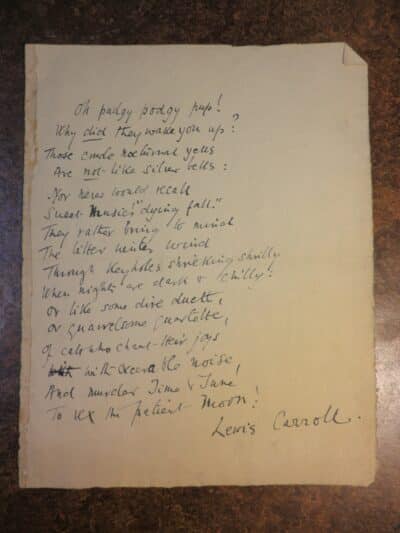 Oh pudgy podgy pup!
Why did they wake you up?
Those crude nocturnal yells
Are not like silver bells:
Nor ever would recall
Sweet Music's "dying fall."
They rather bring to mind
The bitter winter wind
Through keyholes shrieking shrilly
When nights are dark & chilly:
Or like some dire duett,
Or quarrelsome quartette,
Of cats who chant their joys
With execrable noise,
And murder Time & Tune
To vex the patient Moon!
Lewis Carroll.